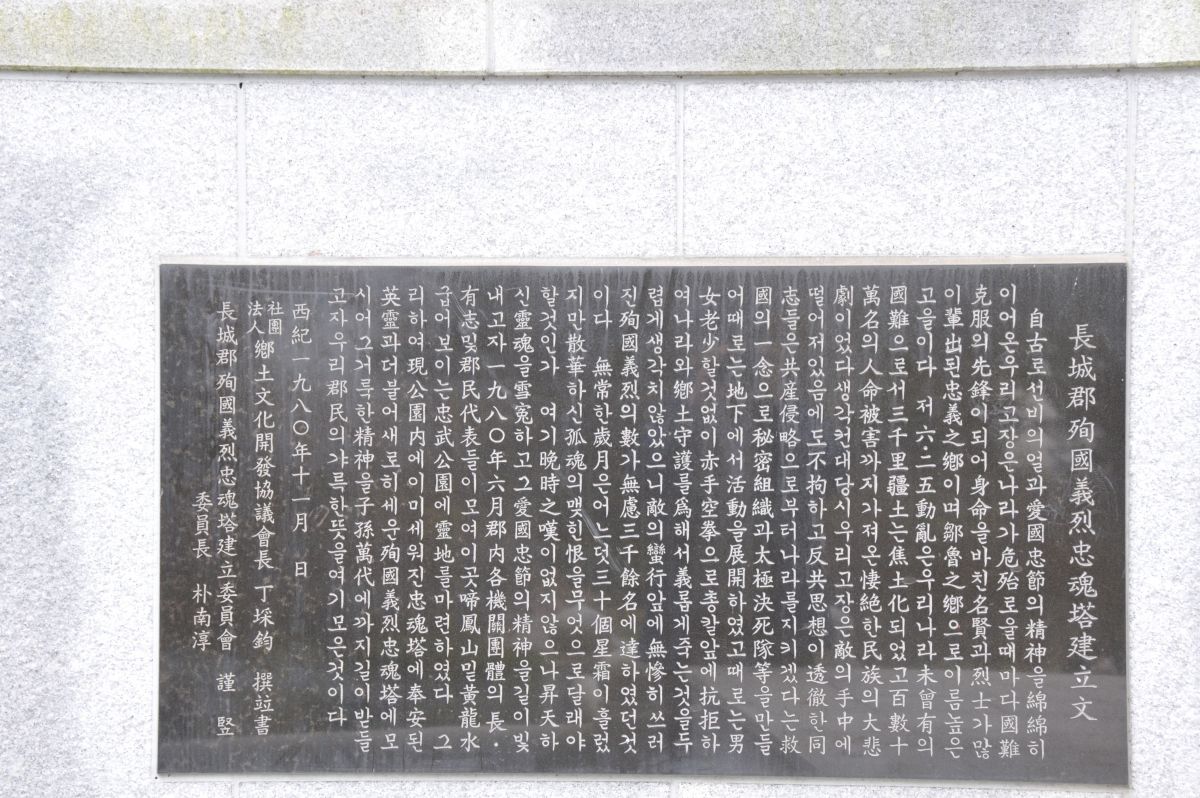 長城郡殉國義烈忠魂塔建立文
自古로선비의얼과愛國忠節의精神을綿綿히
이어온우리고장은나라가危殆로울때마다國難
克服의先鋒이되어身命을바친名賢과烈士가많
이輩出된忠義之鄕이며鄒魯之鄕으로이름높은
고을이다 저 六·二五動亂은우리나라未曾有의
國難으로서三千里疆土는焦土化되었고百數十
萬名의人命被害까지가져온悽絶한民族의大悲
劇이었다생각컨대당시우리고장은敵의手中에
떨어져있음에도不拘하고反共思想이透徹한同
志들은共産侵略으로부터나라를지키겠다는救
國의一念으로秘密組織과太極決死隊等을만들
어때로는地下에서活動을展開하였고때로는男
女老少할것없이赤手空拳으로총칼앞에抗拒하
여나라와鄕土守護를爲해서義롭게죽는것을두
렵게생각치않았으니敵의蠻行앞에無慘히쓰러
진殉國義烈의數가無慮三千餘名에達하였던것
이다 無常한歲月은어느덧三十個星霜이흘렀
지만散華하신孤魂의맺힌恨을무엇으로달래야
할것인가 여기晩時之嘆이없지않으나昇天하
신靈魂을雪寃하고그愛國忠節의精神을길이빛
내고자一九八○年六月郡内各機關團體의長·
有志및郡民代表들이모여이곳啼鳳山밑黃龍水
굽어보이는忠武公園에靈地를마련하였다 그
리하여現公園内에이미세워진忠魂塔에奉安된
英靈과더불어새로히세운殉國義烈忠魂塔에모
시어그거룩한精神을子孫萬代에까지길이받들
고자우리郡民의갸륵한뜻을여기모은것이다
西紀一九八○年十一月 日
社團法人鄕土文化開發協議會長 丁埰鈞 撰竝書
長城郡殉國義烈忠魂塔建立委員會 謹竪
委員長 朴南淳